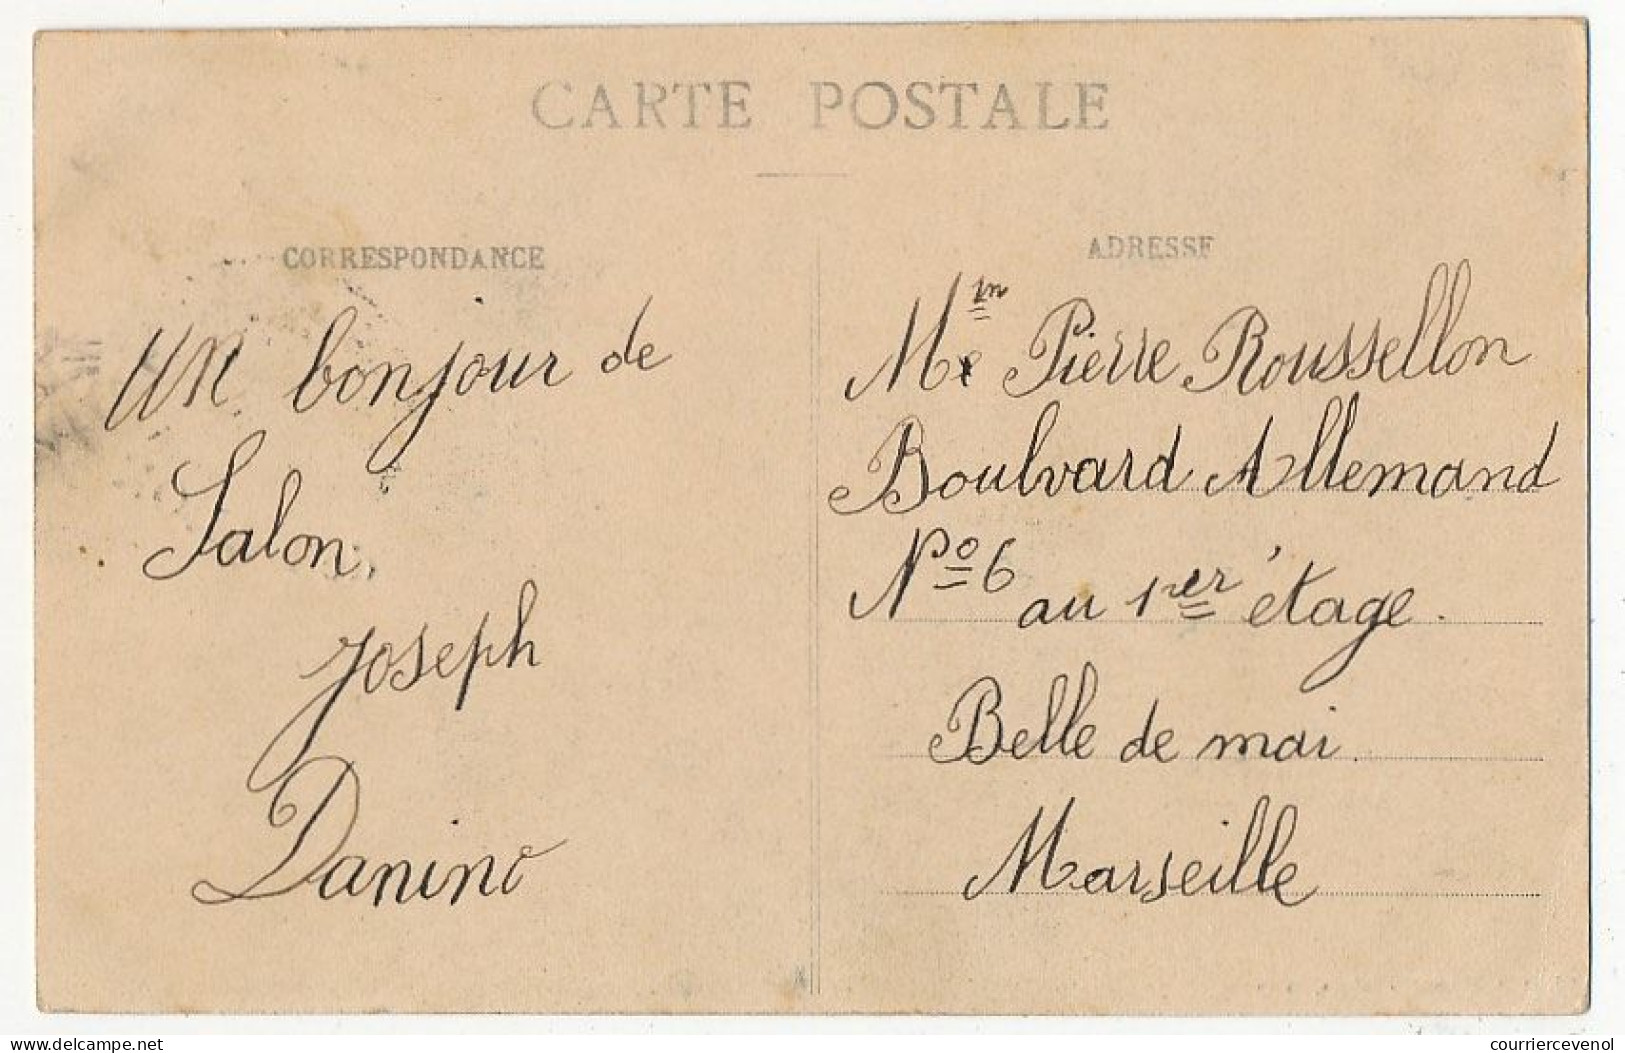 CARTE POSTALE
CORRESPONDANCE
Un bonjour de
Salon.
Joseph
Danino
ADRESSE
Pierre Roussellon
Boulvard Allemand
Nº 6 au 1er étage.
Belle de mai
Marseille
delcampe.net
courriercevenol